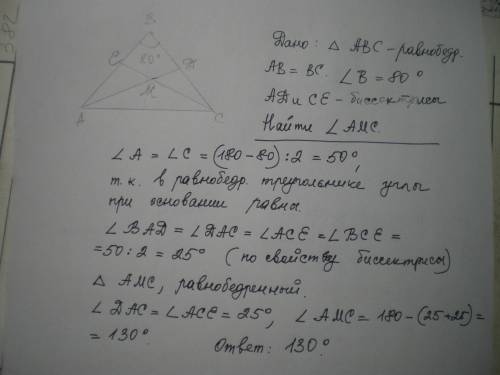 382
B
80°
E
D
M
A
C
Дано: △ ABC - равнобедр.
AB = BC. ∠B = 80°
AD и CE - биссектрисы
Найти ∠AMC.
∠A = ∠C = (180-80):2 = 50°,
т.к. в равнобедр. треугольнике углы
при основании равны.
∠BAD = ∠DAC = ∠ACE = ∠BCE =
=50:2 = 25° (по свойству биссектрисы)
△ AMC, равнобедренный.
∠DAC = ∠ACE = 25°, ∠AMC = 180-(25+25)=
= 130°
Ответ: 130°.